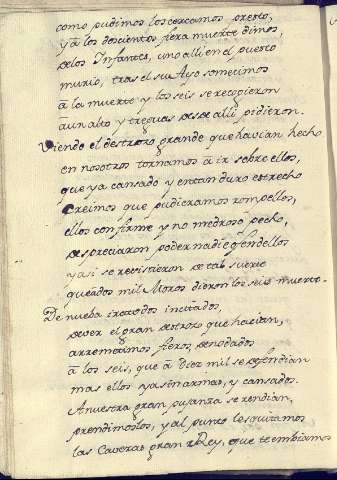 como pudimos los cercamos presto,
y à los doscientos fiera muerte dimos,
de los Infantes, uno alli en el puesto
murio, tras el su Ayo sometimos
à la muerte y los seis se recogieron
à un alto y treguas desde alli pidieron.
Viendo el destrozo grande que havian hecho
en nosotros tornamos à ir sobre ellos,
que ya cansado y en tan duro estrecho
Creimos que pudieramos rompellos,
ellos con firme y no medroso pecho,
despreciaron poder nadie ofendellos
y asi se revistieron de tal suerte
que à dos mil Moros dieron los seis muerte.
De nueba ira todos incitados,
de ver el gran destrozo que hacian,
arremetimos fieros, denodados
à los seis, que à Diez mil se defendian
mas ellos ya sin armas, y cansados.
A nuestra gran pujanza se rendian,
prendimoslos, y al punto les quitamos
las Cavezas gran Rey, que te embiamos